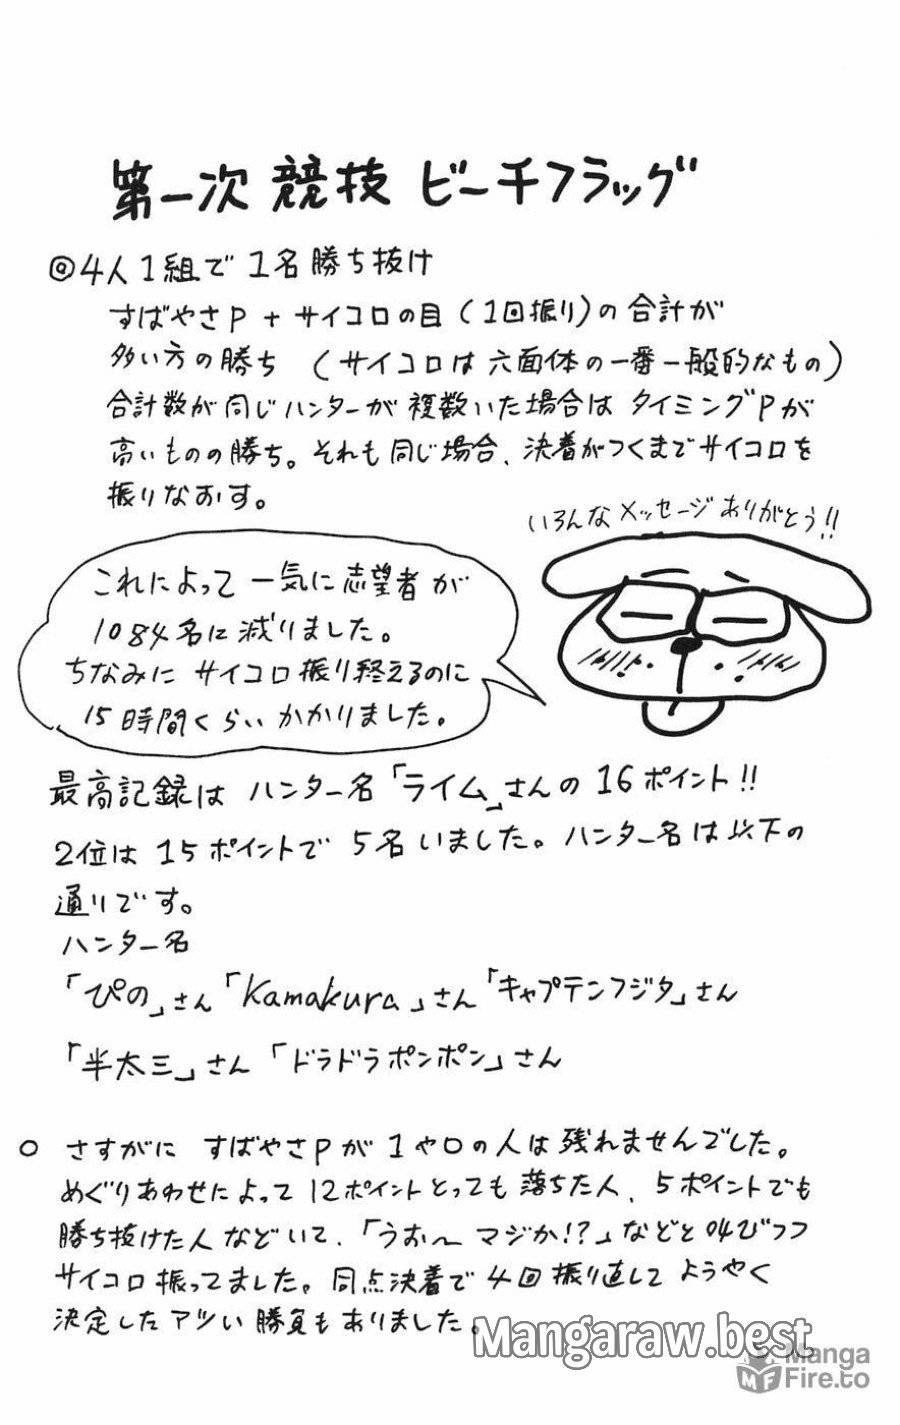 第一次 競技 ビーチフラッグ
◎4人1組で1名勝ち抜け
すばやさP + サイコロの目(1回振り)の合計が
多い方の勝ち (サイコロは六面体の一番一般的なもの)
合計数が同じハンターが複数いた場合はタイミングPが
高いものの勝ち。それも同じ場合、決着がつくまでサイコロを
振りなおす。
いろんなメッセージありがとう!!
これによって一気に志望者が
1084名に減りました。
ちなみにサイコロ振り終えるのに
15時間くらいかかりました。
最高記録はハンター名「ライム」さんの16ポイント!!
2位は15ポイントで5名いました。ハンター名は以下の
通りです。
ハンター名
「ぴの」さん「Kamakura」さん「キャプテンフジタ」さん
「半太三」さん「ドラドラポンポン」さん
○ さすがにすばやさPが1や0の人は残れませんでした。
めぐりあわせによって12ポイントとっても落ちた人、5ポイントでも
勝ち抜けた人などいて、「うお〜マジか!?」などと叫びつつ
サイコロ振ってました。同点決着で4回振り直してようやく
決定したアツい勝負もありました。
Mangaraw.best
Manga
Fire.to
MF